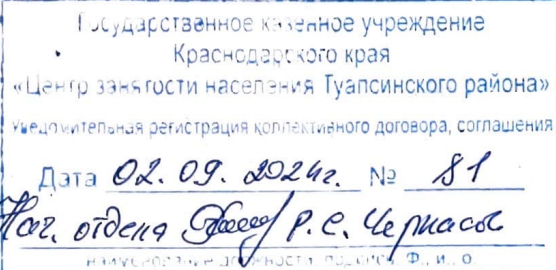 Государственное казенное учреждение
Краснодарского края
«Центр занятости населения Туапсинского района»
Уведомительная регистрация коллективного договора, соглашения
Дата 02.09.2024г. № 81
Нач. отдела Р.С. Черкасов
наименование должности, подпись, Ф., и., о.